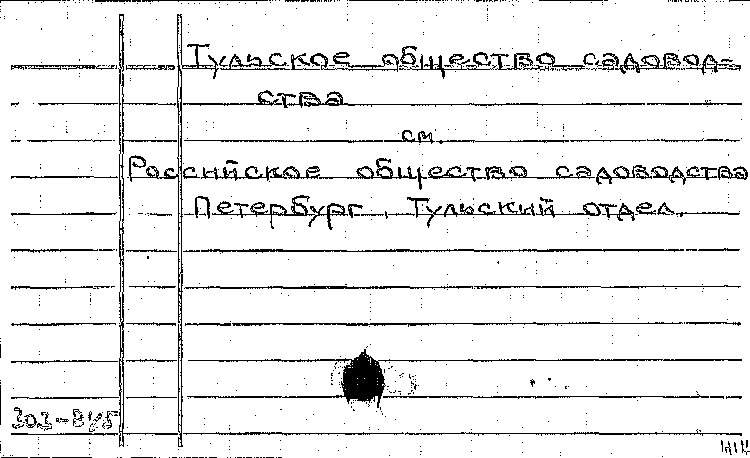 Тульское общество садовод-
ства
см.
Российское общество садоводства
Петербург, Тульский отдел.